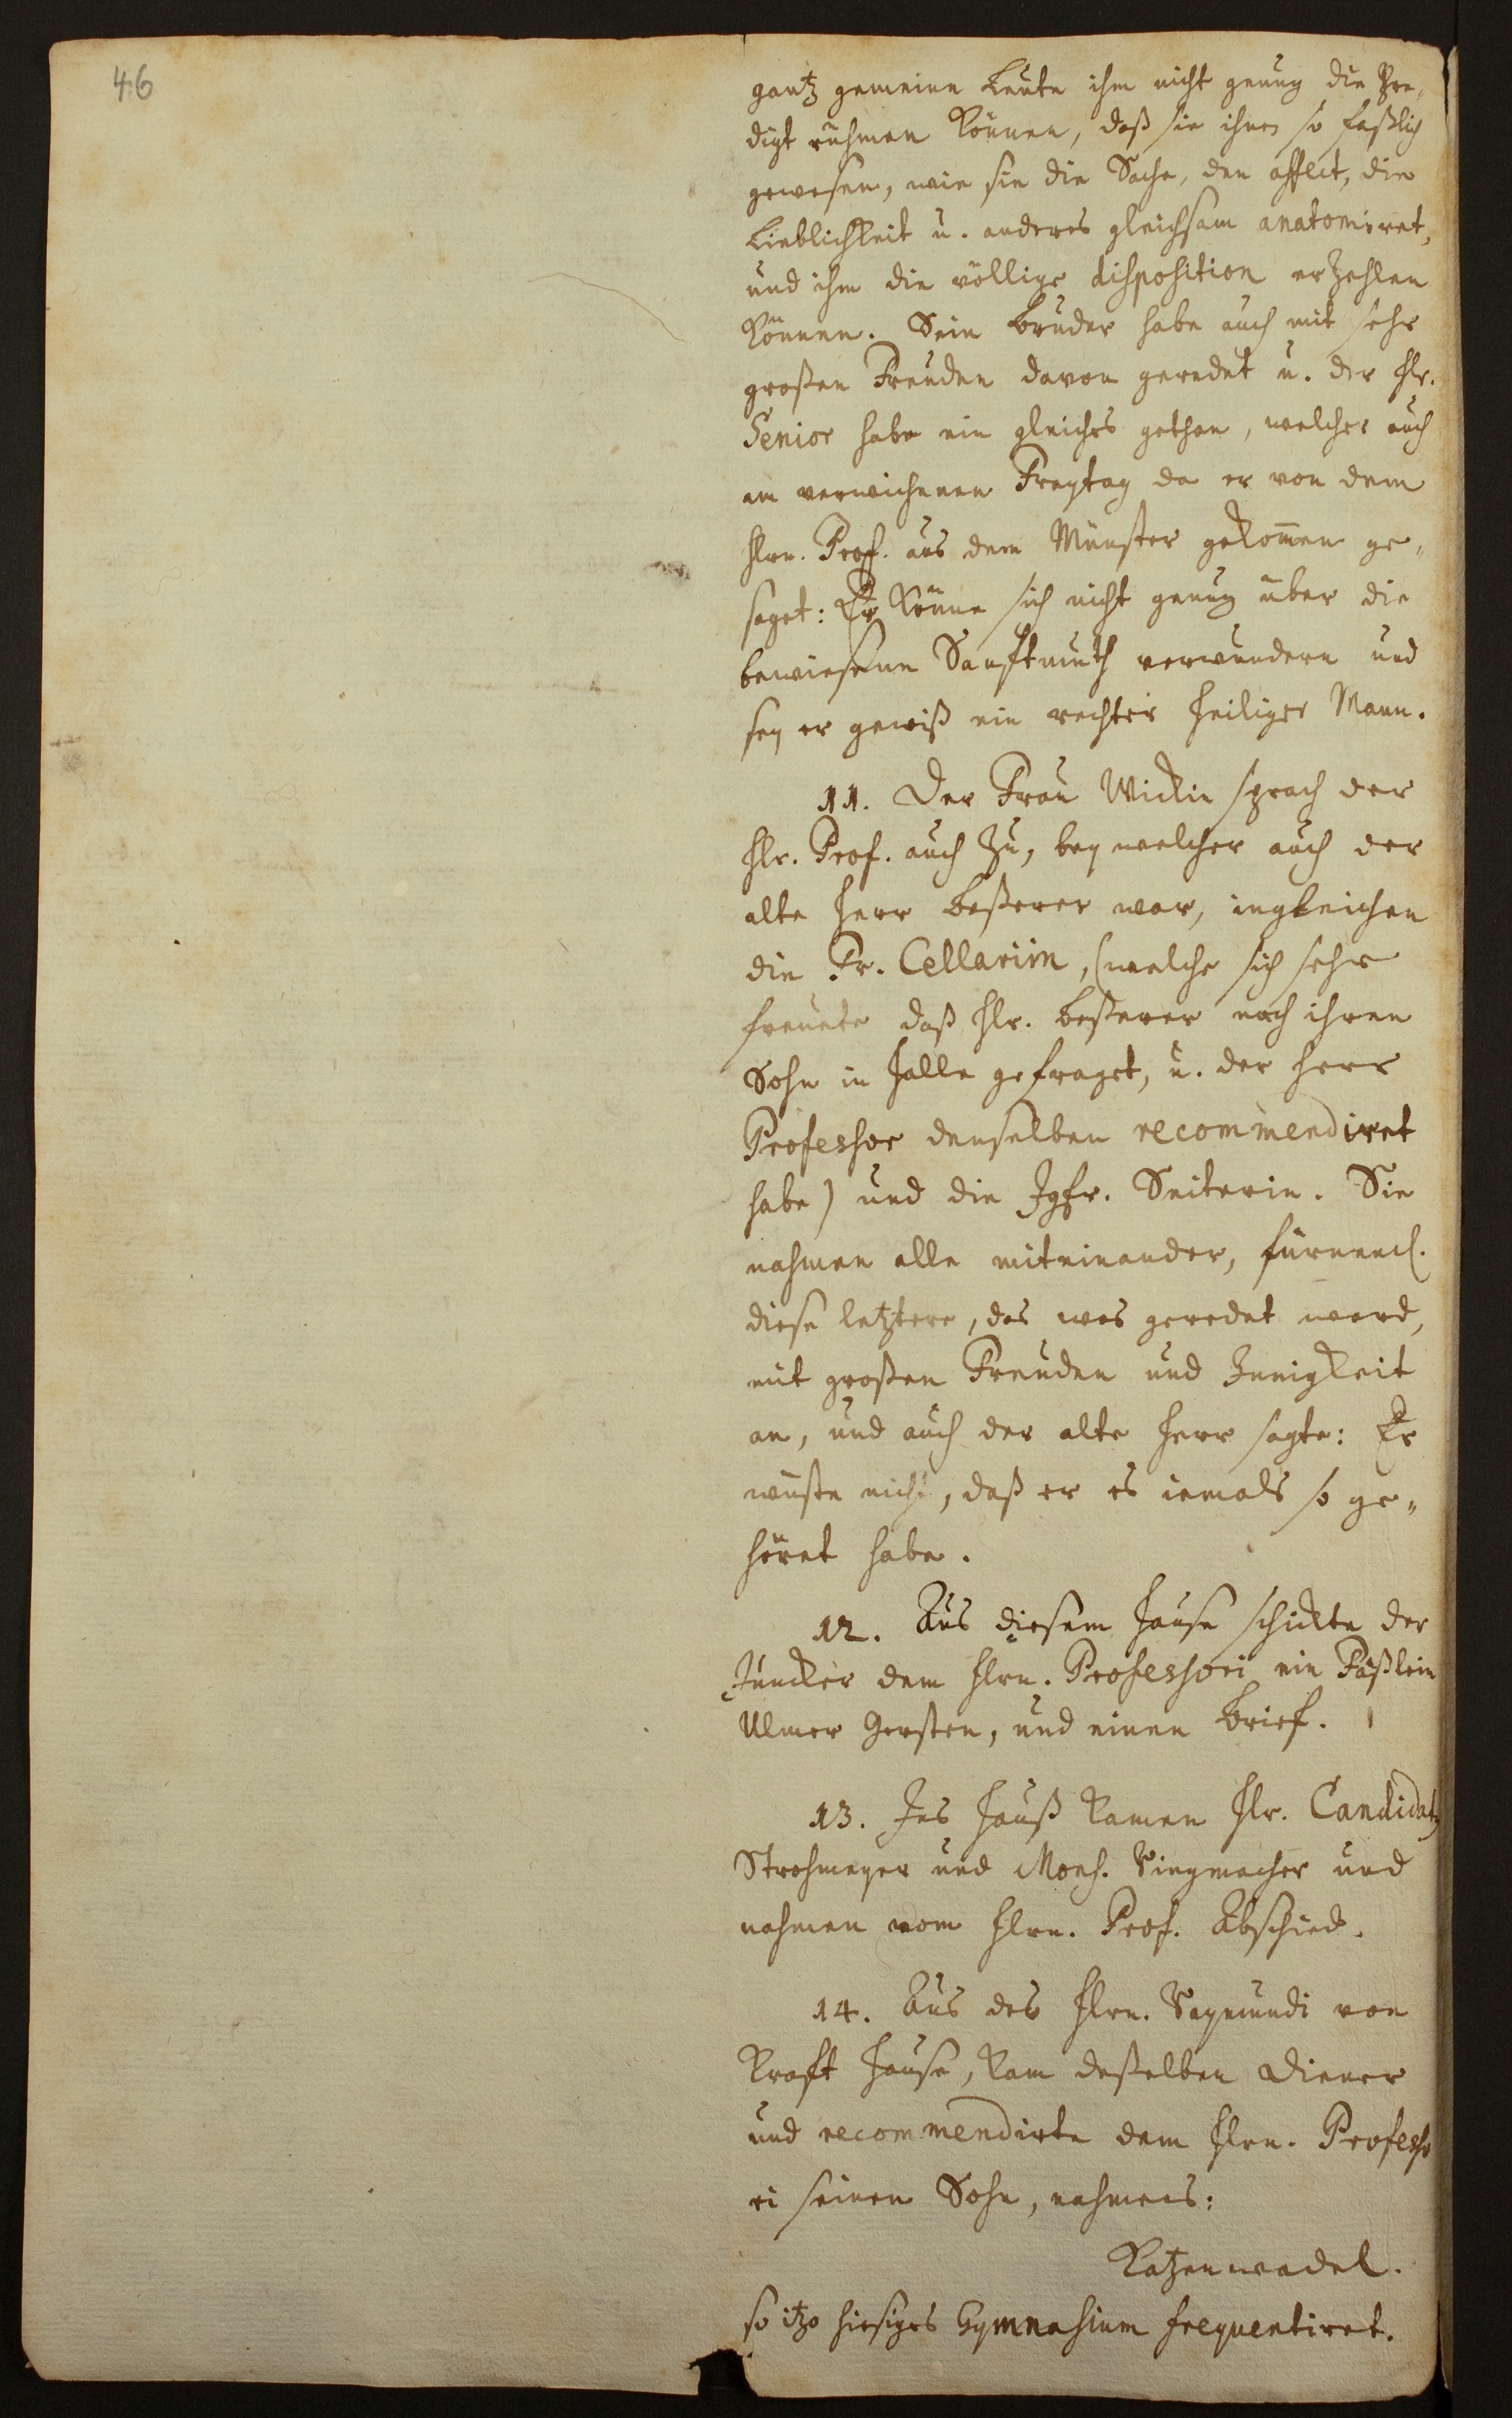 46
gantz gemeine Leute ihm nicht genug die Pre-
digt rühmen können, daß sie ihnen so faßlich
gewesen, wie sie die Sache, den affect, die
Lieblichkeit u. anderes gleichsam anatomiret,
und ihm die völlige disposition erzehlen
können. Sein Bruder habe auch mit sehr
großen Freuden davon geredet u. der Hr.
Senior habe ein gleiches gethan, welcher auch
am verwichenen Freytag da er von dem
Hrn. Prof. aus dem Münster gekom̄en ge-
saget: Er könne sich nicht genug über die
bewiesene Sanftmuth verwundern und
sey er gewiß ein rechter heiliger Mann.
11. Der Frau Wickin sprach der
Hr. Prof. auch zu, bey welcher auch der
alte Herr Beßerer war, ingleichen
die Fr. Cellariin, (welche sich sehr
freuete daß Hr. Beßerer nach ihren
Sohn in Halle gefraget, u. der Herr
Professor denselben recommendiret
habe) und die Jgfr. Seiterin. Sie
nahmen alle miteinander, fürneml.
diese letztere, das was geredet ward,
mit großen Freuden und Innigkeit
an, und auch der alte Herr sagte: Er
wüste nicht, daß er es iemals so ge-
höret habe.
12. Aus diesem Hause schickte der
Juncker dem Hrn. Professori ein Fäßlein
Ulmer Gersten, und einen Brief.
13. Ins Hauß kamen Hr. Candidatg
Strohmeyer und Mons. Ringmacher und
nahmen vom Hrn. Prof. Abschied.
14. Aus des Hrn. Raymundi von
Kraft Hause, kam deßelben Diener
und recommendirte dem Hrn. Professo
ri seinen Sohn, nahmens:
Katzenwadel.
so itzo hiesiges Gymnasium frequentiret.